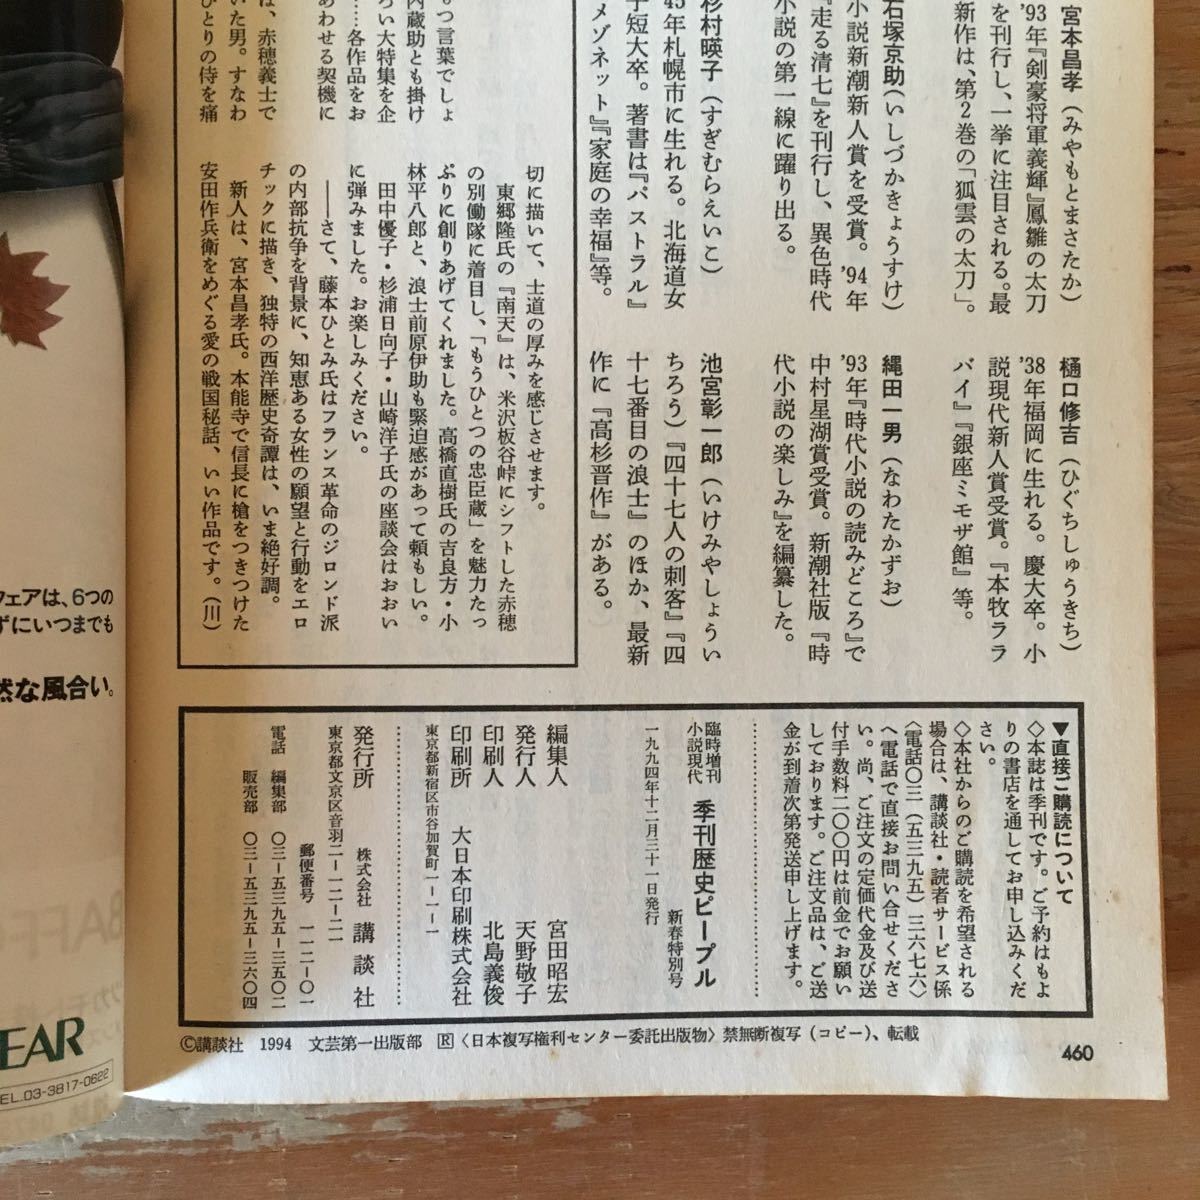 宮本昌孝（みやもとまさたか）
'93年『剣豪将軍義輝』鳳雛の太刀
を刊行し、一挙に注目される。最
新作は、第２巻の「狐雲の太刀」。
石塚京助（いしづかきょうすけ）
小説新潮新人賞を受賞。'94年
『走る清七』を刊行し、異色時代
小説の第一線に躍り出る。
杉村暎子（すぎむらえいこ）
45年札幌市に生れる。北海道女
子短大卒。著書は『パストラル』
『メゾネット』『家庭の幸福』等。
樋口修吉（ひぐちしゅうきち）
'38年福岡に生れる。慶大卒。小
説現代新人賞受賞。『本牧ララ
バイ』『銀座ミモザ館』等。
縄田一男（なわたかずお）
'93年『時代小説の読みどころ』で
中村星湖賞受賞。新潮社版『時
代小説の楽しみ』を編纂した。
池宮彰一郎（いけみやしょうい
ちろう）『四十七人の刺客』『四
十七番目の浪士』のほか、最新
作に『高杉晋作』がある。
つ言葉でしょ
内蔵助とも掛け
ろい大特集を企
……各作品をお
あわせる契機に
は、赤穂義士で
いた男。すなわ
ひとりの侍を痛
切に描いて、士道の厚みを感じさせます。
東郷隆氏の『南天』は、米沢板谷峠にシフトした赤穂
の別働隊に着目し、「もうひとつの忠臣蔵」を魅力たっ
ぷりに創りあげてくれました。高橋直樹氏の吉良方・小
林平八郎と、浪士前原伊助も緊迫感があって頼もしい。
田中優子・杉浦日向子・山崎洋子氏の座談会はおおい
に弾みました。お楽しみください。
――さて、藤本ひとみ氏はフランス革命のジロンド派
の内部抗争を背景に、知恵ある女性の願望と行動をエロ
チックに描き、独特の西洋歴史奇譚は、いま絶好調。
新人は、宮本昌孝氏。本能寺で信長に槍をつきつけた
安田作兵衛をめぐる愛の戦国秘話、いい作品です。（川）
▼直接ご購読について
◇本誌は季刊です。ご予約はもよ
りの書店を通してお申し込みくだ
さい。
◇本社からのご購読を希望される
場合は、講談社・読者サービス係
〈電話〇三（五三九五）三六七六〉
へ電話で直接お問い合せくださ
い。尚、ご注文の定価代金及び送
付手数料二〇〇円は前金でお願い
しております。ご注文品は、ご送
金が到着次第発送申し上げます。
臨時増刊
小説現代
季刊歴史ピープル
新春特別号
一九九四年十二月三十一日発行
編集人 宮田昭宏
発行人 天野敬子
印刷人 北島義俊
印刷所 大日本印刷株式会社
東京都新宿区市谷加賀町一-一-一
発行所 株式会社 講談社
東京都文京区音羽二-一二-二一
郵便番号 一一二-〇一
電話 編集部 〇三-五三九五-三五〇二
販売部 〇三-五三九五-三六〇四
©講談社 1994 文芸第一出版部 R〈日本複写権利センター委託出版物〉禁無断複写（コピー）、転載
460
ウェアは、6つの
ずにいつまでも
然な風合い。
EAR
EL.03-3817-0622